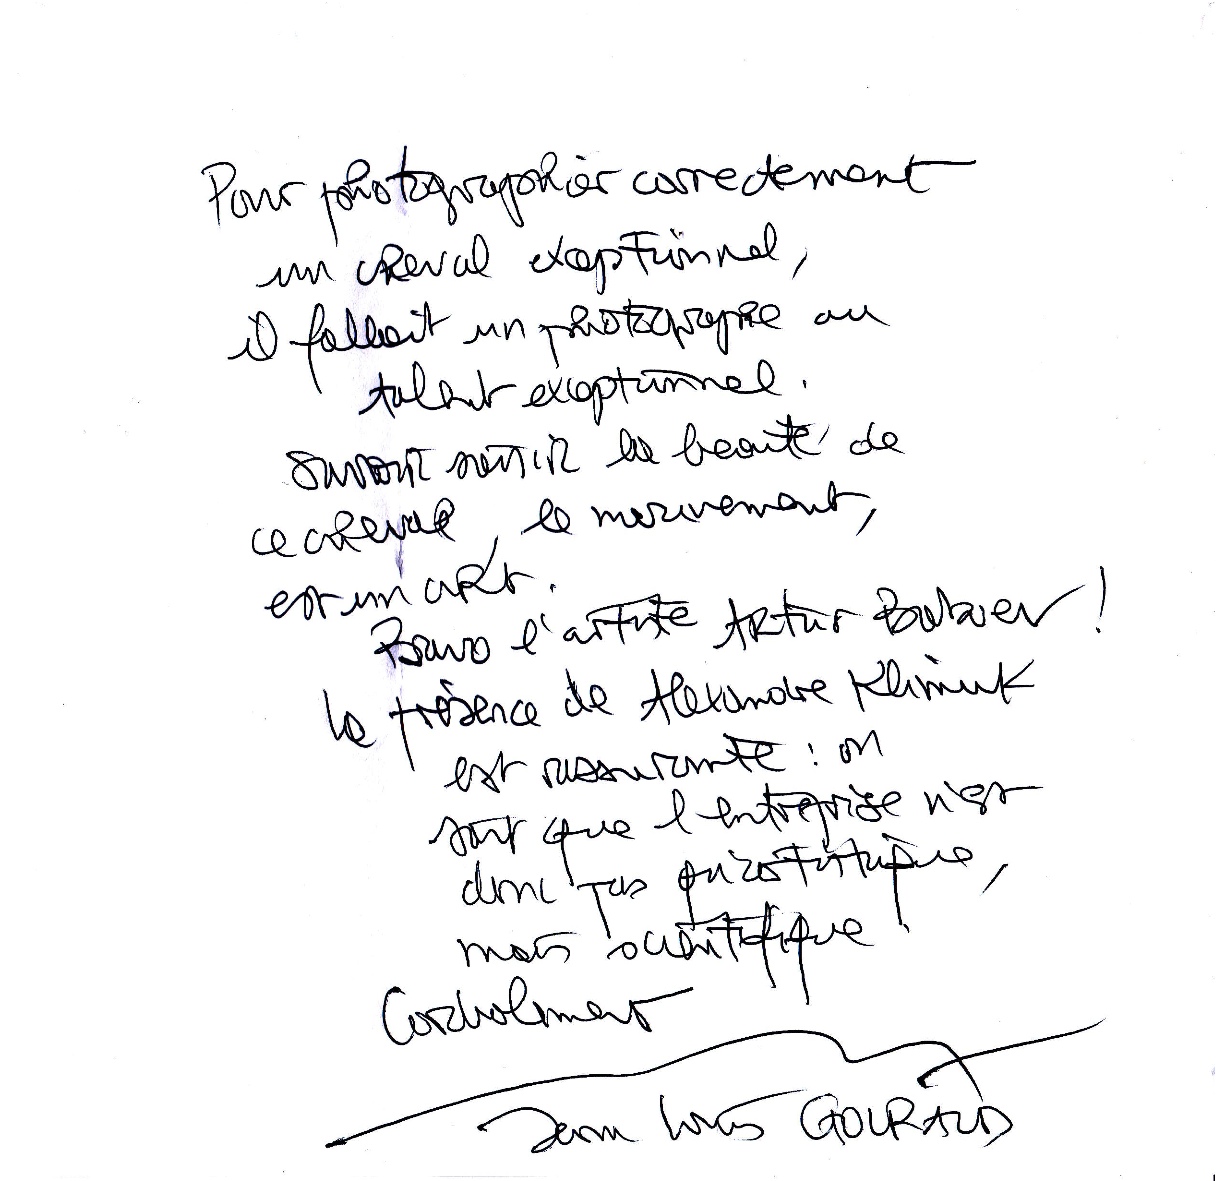 Pour photographier correctement
un cheval exceptionnel,
il fallait un photographe au
talent exceptionnel.
Savoir sentir la beauté de
ce cheval, le mouvement,
est un art.
Bravo l'artiste Artur Baboev !
La présence de Alexandre Klimuk
est rassurante : on
sait que l'entreprise n'est
donc pas qu'artistique,
mais scientifique
Cordialement
Jean Louis GOURAUD